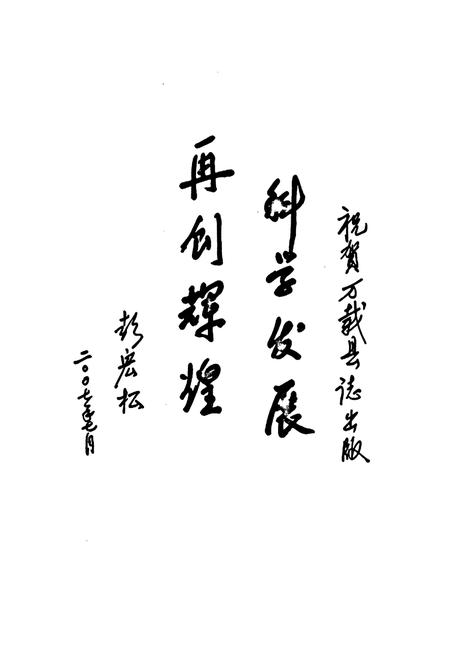 祝贺万载县志出版
科学发展
再创辉煌
彭宏松
二〇〇七年七月